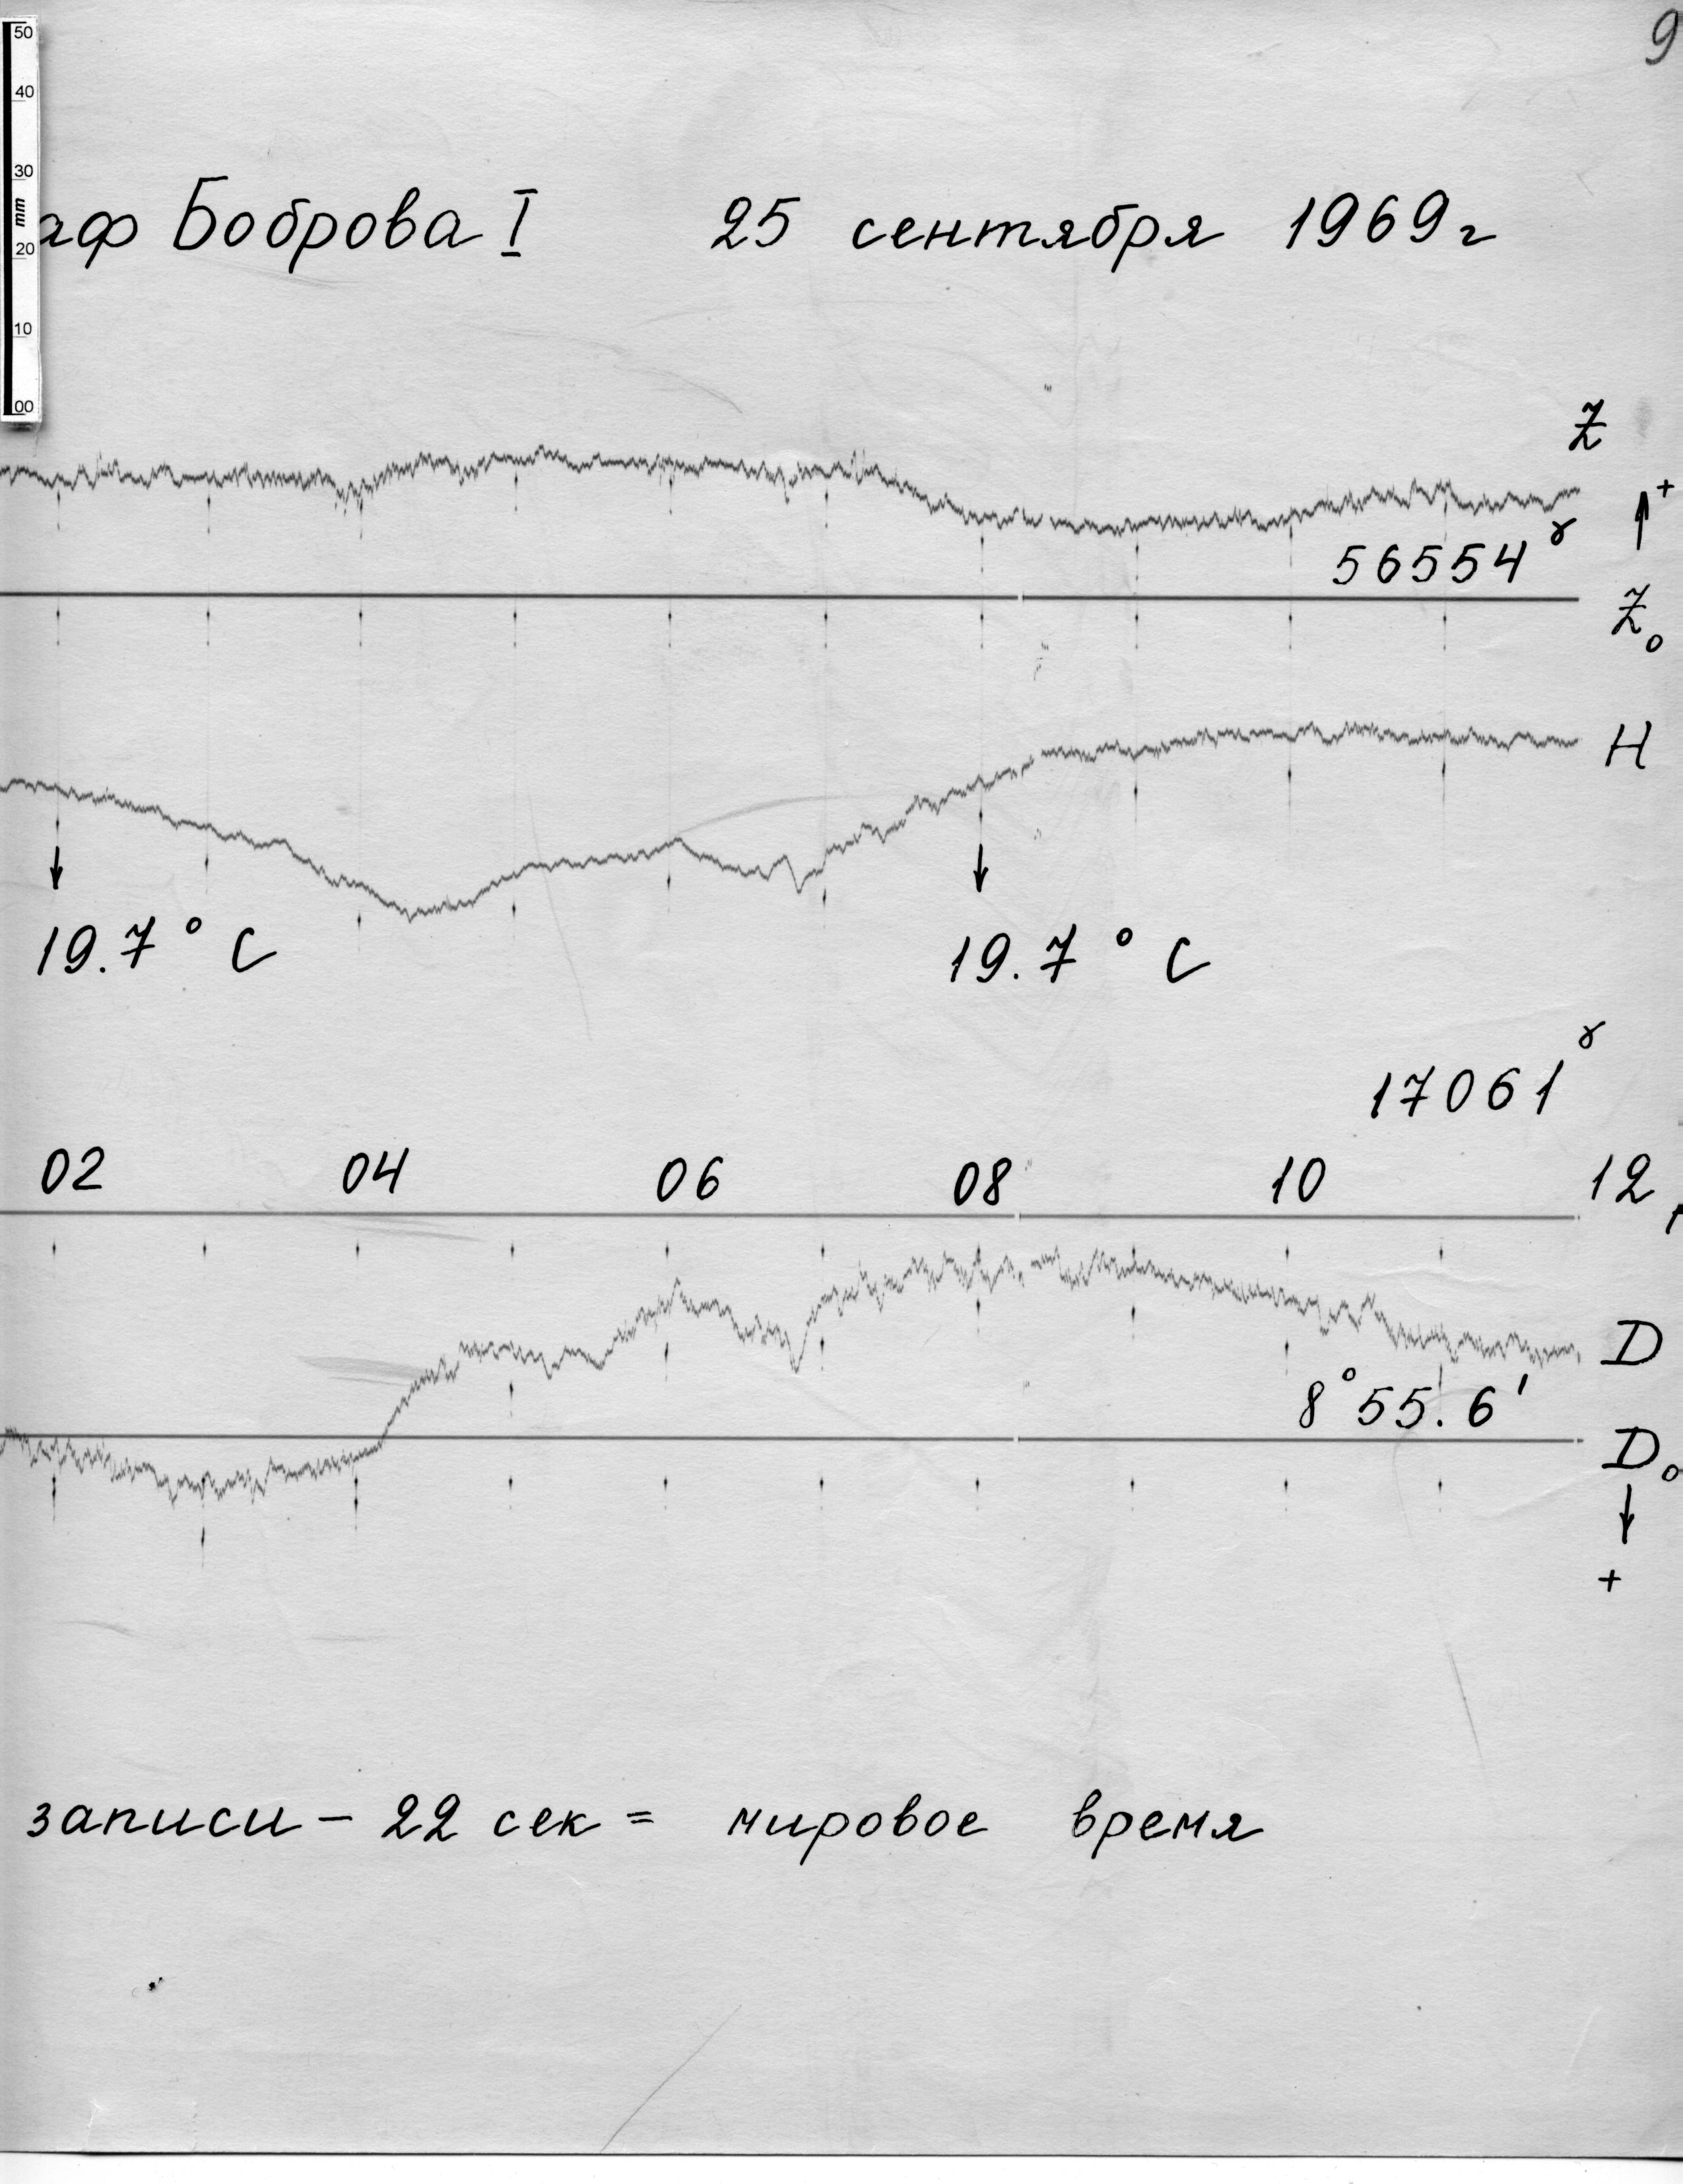 9
50
40
30
mm
20
10
00
аф Боброва I 25 сентября 1969 г
Z
+
56554 γ
Z₀
H
19.7 ° C 19.7 ° C
17061 γ
02 04 06 08 10 12
D
8° 55.6'
D₀
+
записи – 22 сек = мировое время